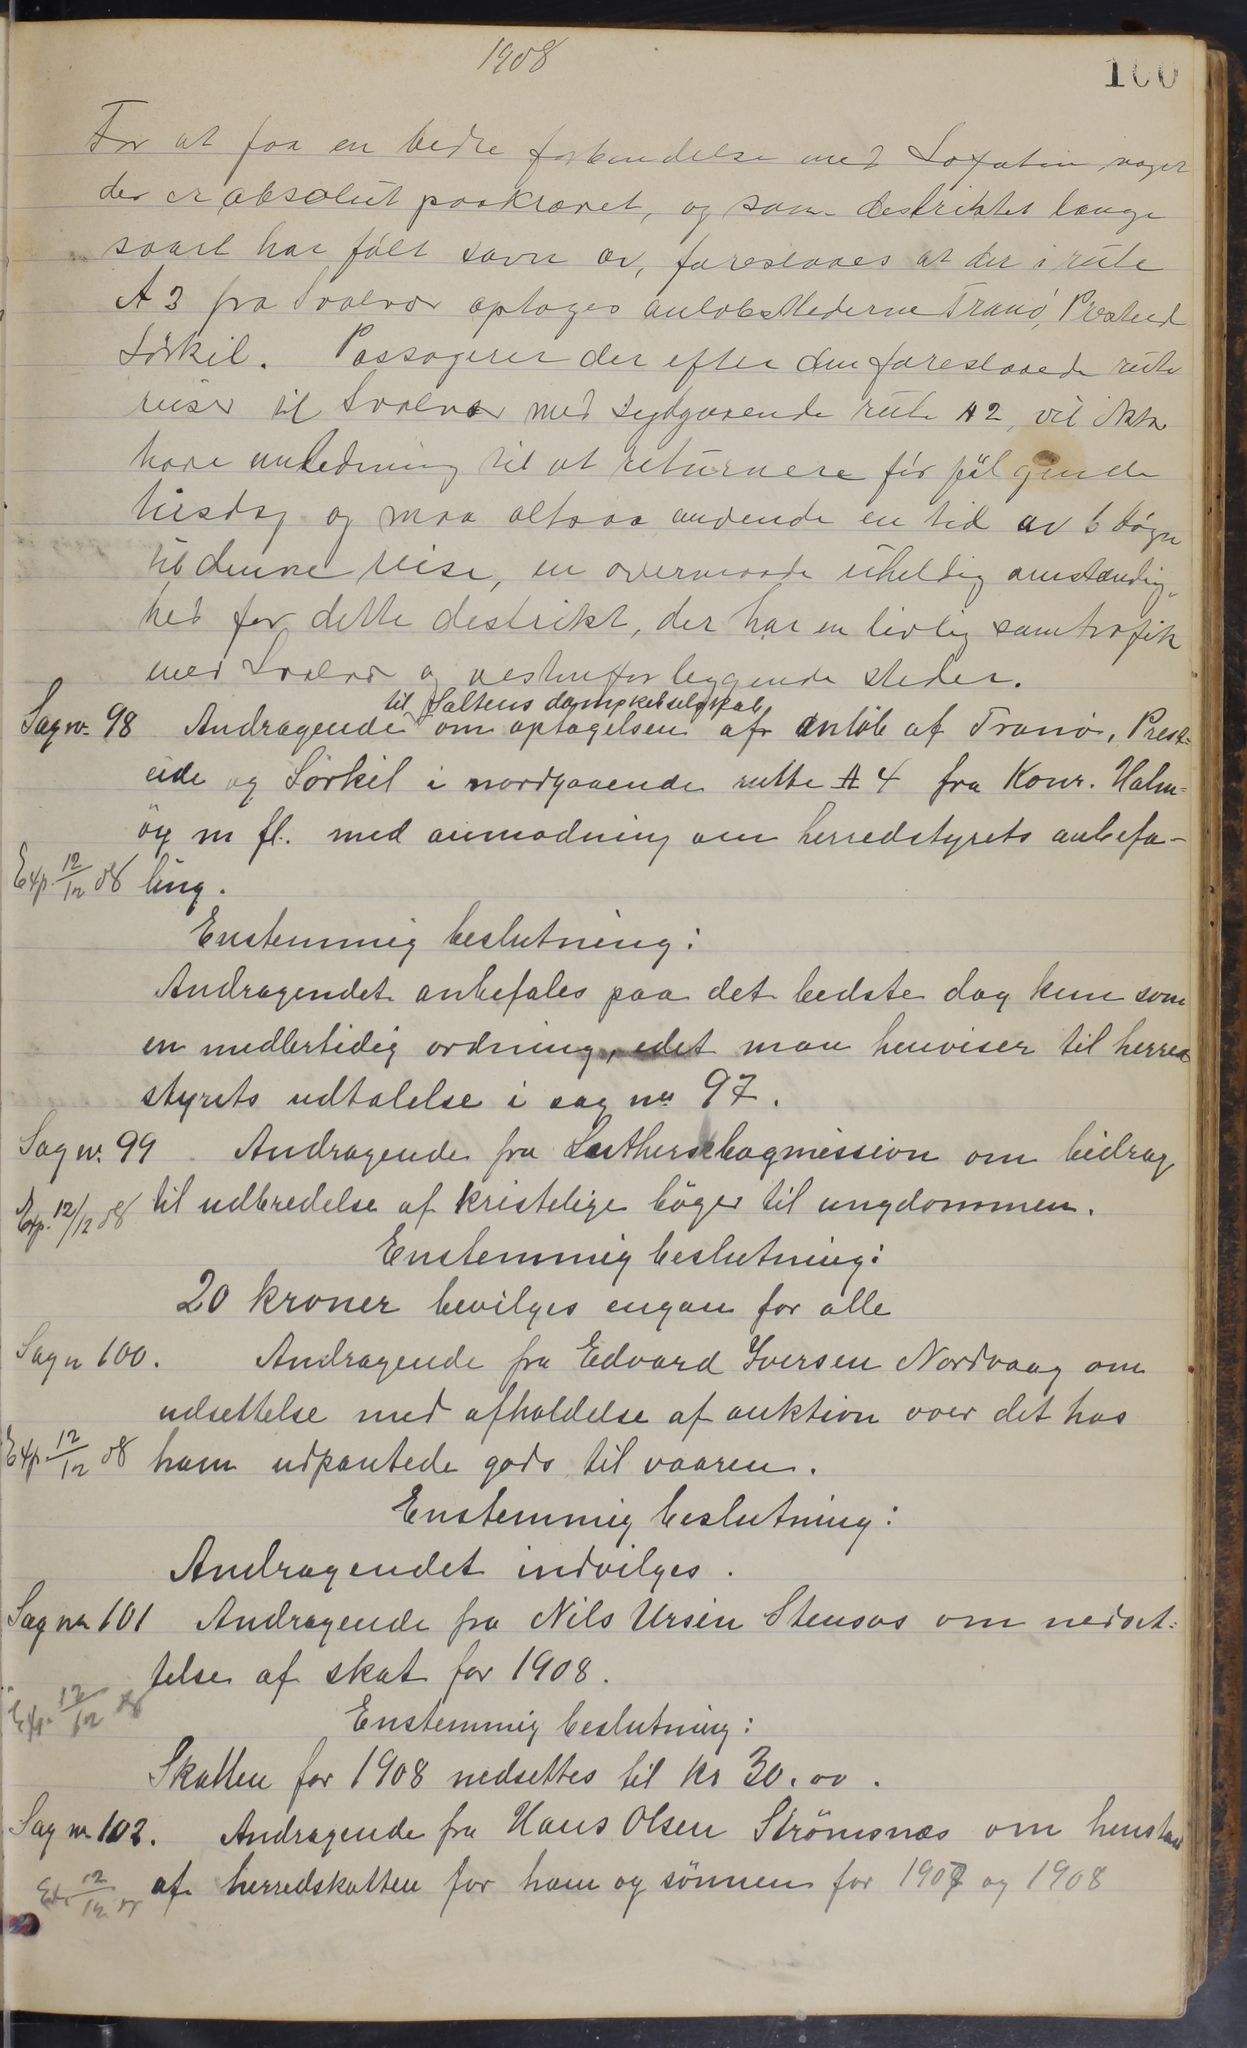 1908
100
For at faa en bedre forbindelse med Lofoten noget
der er absolut paakrævet, og som destriktet længe
saart har følt savn av, foreslaaes at der i rute
A 3 fra Svolvær optages anløbsstederne Tranö, Presteid
Sörkil. Passagerer der efter den foreslaaede rute
reiser til Svolvær med sydgaaende rute A 2, vil ikke
have anledning til at returnere för fölgende
tirsdag og maa altsaa anvende en tid av 6 dögn
til denne reise, en overmaade uheldig omstændig-
hed for dette destrikt, der har en livlig samtrafik
med Svolvær og vestenfor liggende steder.
til Saltens dampskibsselskab
Sag nr. 98 Andragende om optagelsen af anlöb af Tranö, Prest-
eide og Sörkil i nordgaaende rutte A 4 fra Konr. Halm-
öy m fl. med anmodning om herredstyrets anbefa-
Exp. 12/12 08 ling.
Enstemmig beslutning:
Andragendet anbefales paa det bedste dog kun som
en midlertidig ordning, idet man henviser til herred
styrets udtalelse i sag nr 97.
Sag nr. 99 Andragende fra Lutherbogmission om bidrag
Exp. 12/12 08 til udbredelse af kristelige böger til ungdommen.
Enstemmig beslutning:
20 kroner bevilges engang for alle
Sag nr 100. Andragende fra Edvard Iversen Nordvaag om
udsettelse med afholdelse af auktion over det hos
Exp. 12/12 08 ham udpantede gods til vaaren.
Enstemmig beslutning:
Andragendet indvilges.
Sag nr 101 Andragende fra Nils Ursin Stensos om nedset-
telse af skat for 1908.
Exp. 12/12 08
Enstemmig beslutning:
Skatten for 1908 nedsettes til kr 30.00.
Sag nr 102. Andragende fra Hans Olsen Strömsnes om henstand
Exp 12/12 08 af herredskatten for ham og sönnen for 1907 og 1908